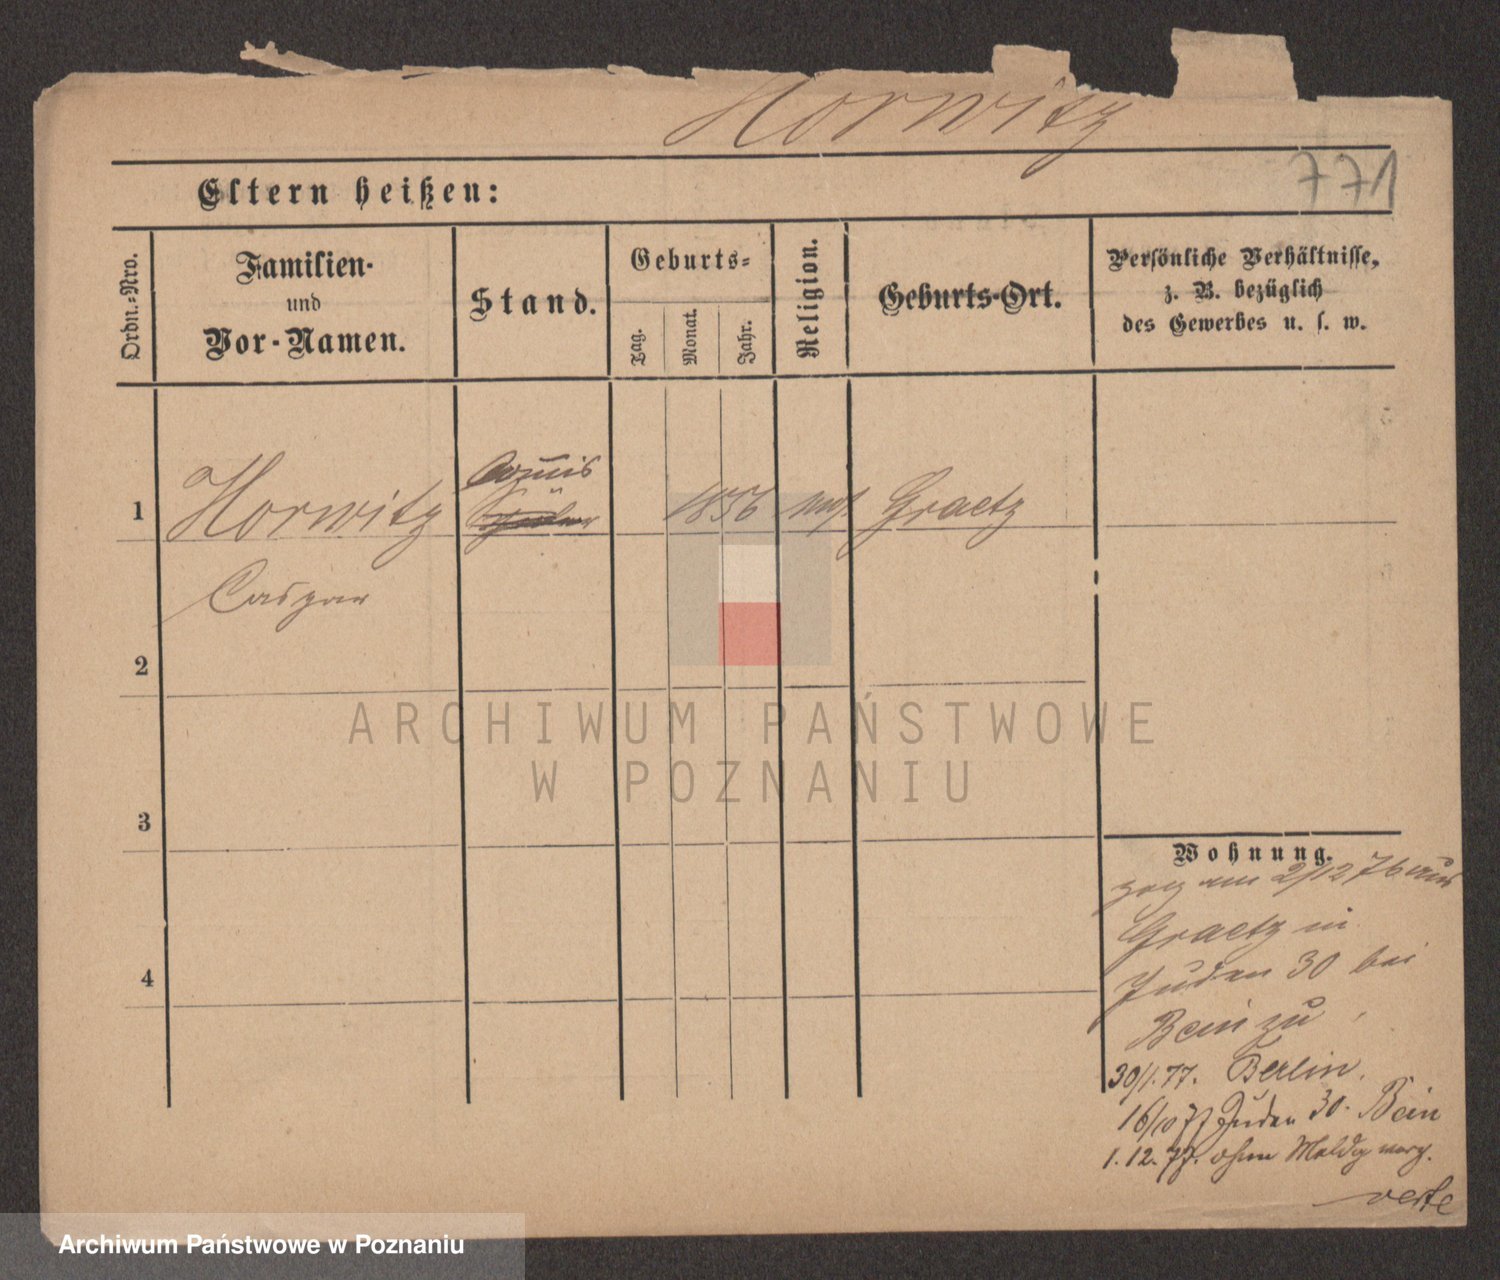 Horwitz
771
Eltern heißen:
Ordn.-Nro.
Familien-
und
Vor-Namen.
Stand.
Geburts-
Tag.
Monat.
Jahr.
Religion.
Geburts-Ort.
Persönliche Verhältnisse,
z. B. bezüglich
des Gewerbes u. s. w.
Com̅is
1 Horwitz Schüler 1856 mos. Graetz
Caspar
2
3
4
Wohnung.
zog am 2/12 76 aus
Graetz in
Juden 30 bei
Bein zu
30/1.77. Berlin.
16/10 77 Juden 30. Bein
1.12.77. ohne Meldg verz.
verte
ARCHIWUM PAŃSTWOWE
W POZNANIU
Archiwum Państwowe w Poznaniu